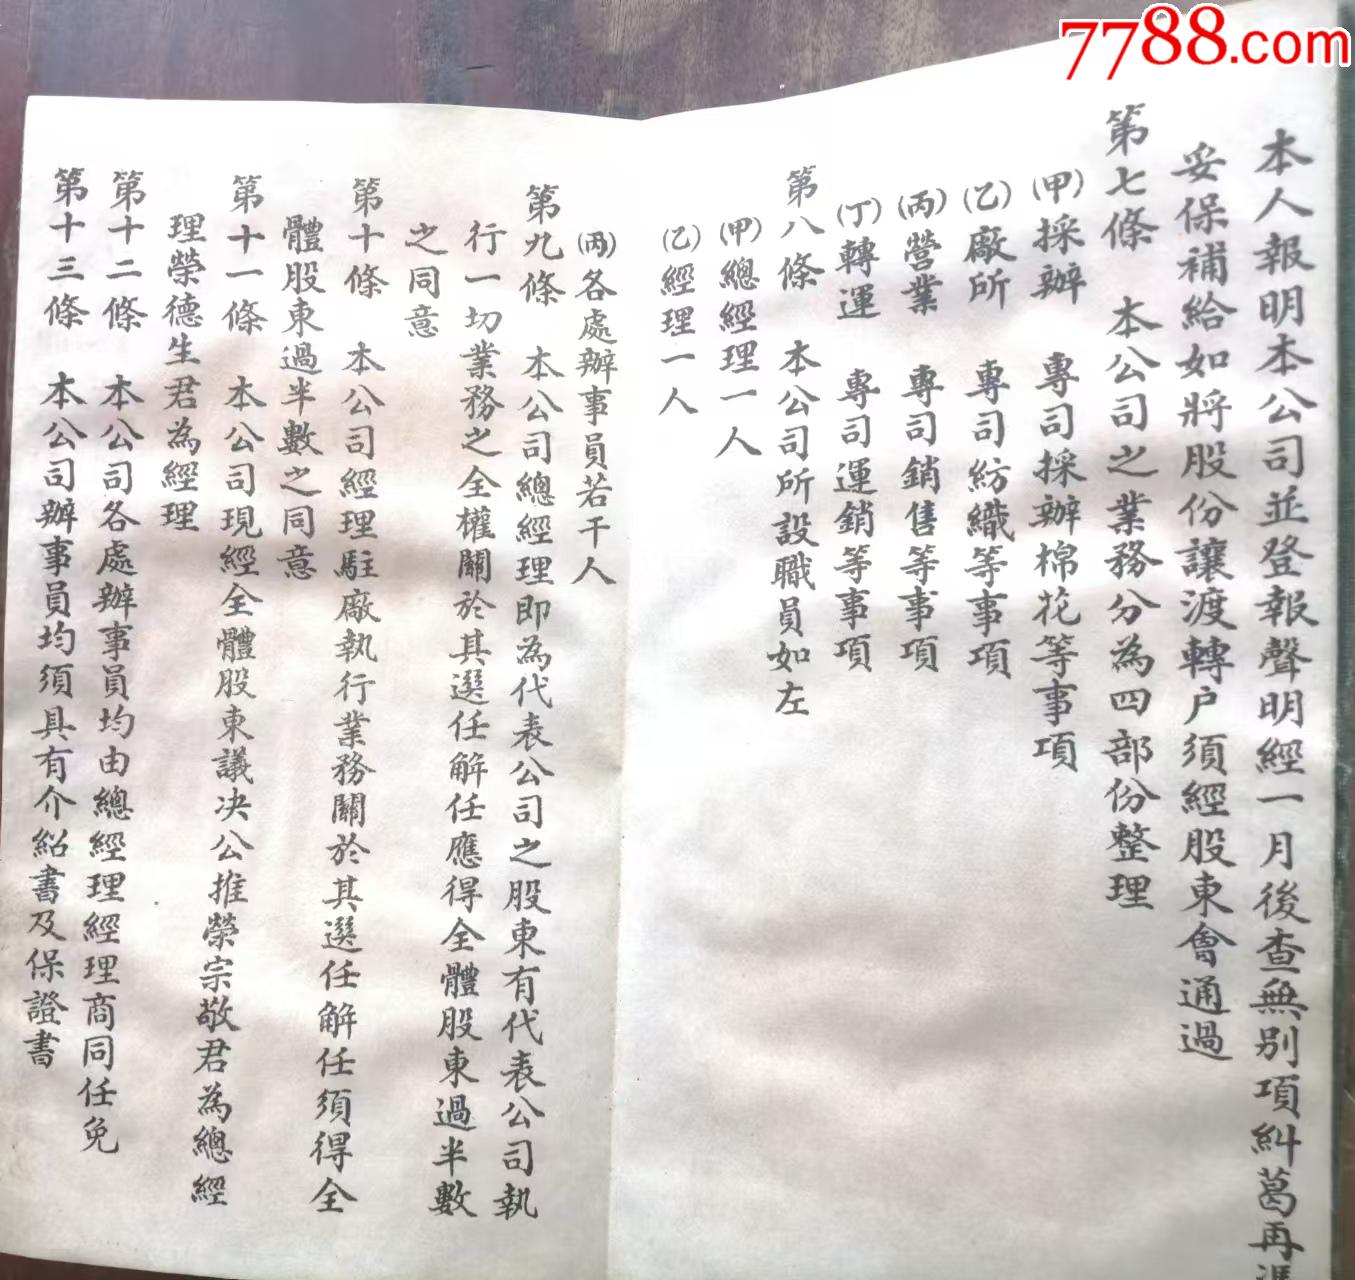 7788.com
本人報明本公司並登報聲明經一月後查無别項糾葛再
妥保補給如將股份讓渡轉户須經股東會通過
第七條　本公司之業務分為四部份整理
(甲)採辦　專司採辦棉花等事項
(乙)廠所　專司紡織等事項
(丙)營業　專司銷售等事項
(丁)轉運　專司運銷等事項
第八條　本公司所設職員如左
(甲)總經理一人
(乙)經理一人
(丙)各處辦事員若干人
第九條　本公司總經理即為代表公司之股東有代表公司執
行一切業務之全權關於其選任解任應得全體股東過半數
之同意
第十條　本公司經理駐廠執行業務關於其選任解任須得全
體股東過半數之同意
第十一條　本公司現經全體股東議决公推榮宗敬君為總經
理榮德生君為經理
第十二條　本公司各處辦事員均由總經理經理商同任免
第十三條　本公司辦事員均須具有介紹書及保證書